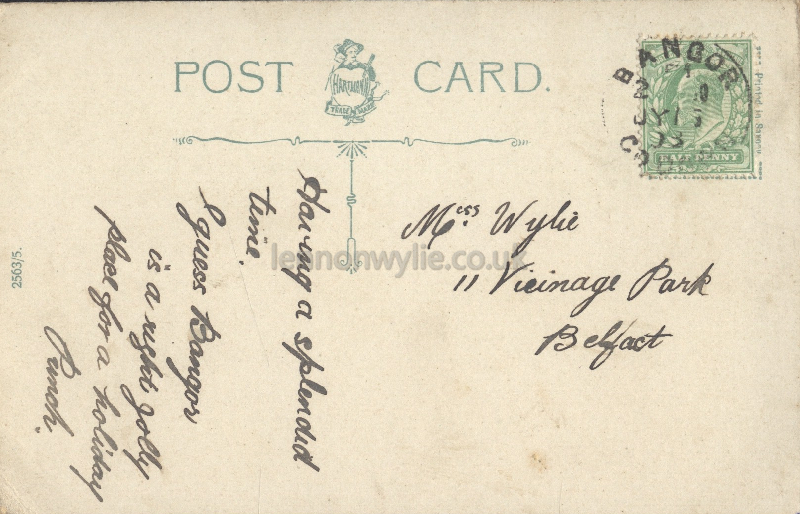 POST CARD.
HARTMANN
TRADE MARK
BANGOR
JY 13
HALF PENNY
Printed in Saxony
Miss Wylie
11 Vicinage Park
Belfast
Having a splendid
time.
I guess Bangor
is a right jolly
place for a holiday
Punch.
2563/5.
lennonwylie.co.uk